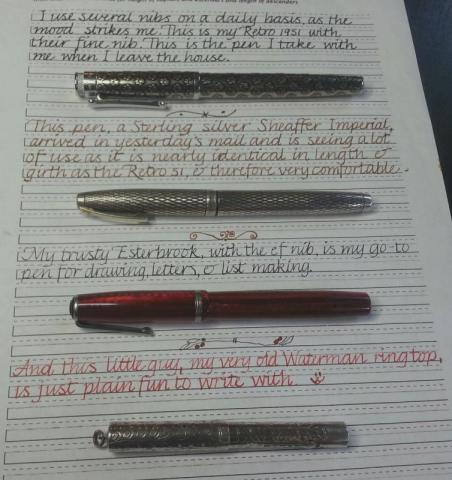 length of descenders
I use several nibs on a daily basis, as the
mood strikes me. This is my Retro 1951 with
their fine nib. This is the pen I take with
me when I leave the house.
This pen, a Sterling silver Sheaffer Imperial,
arrived in yesterday's mail and is seeing a lot
of use as it is nearly identical in length &
girth as the Retro 51, & therefore very comfortable.
My trusty Esterbrook, with the ef nib, is my go-to
pen for drawing, letters, & list making.
And this little guy, my very old Waterman ringtop,
is just plain fun to write with